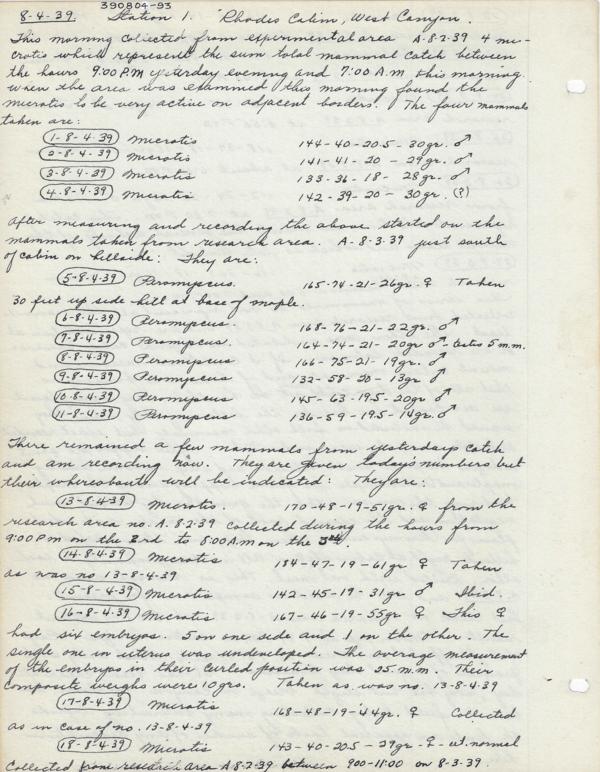 390804-93
8-4-39. Station 1. Rhodes Cabin, West Canyon.
This morning collected from experimental area A-8-2-39 4 mi-
crotis which represent the sum total mammal catch between
the hours 9:00 P.M yesterday evening and 7:00 A.M this morning.
When the area was examined this morning found the
microtis to be very active on adjacent borders. The four mammals
taken are:
1-8-4-39 Microtis 144-40-20.5-30gr. ♂
2-8-4-39 Microtis 141-41-20-29gr. ♂
3-8-4-39 Microtis 133-36-18-28gr. ♂
4-8-4-39 Microtis 142-39-20-30gr. (?)
After measuring and recording the above started on the
mammals taken from research area. A-8-3-39 just south
of cabin on hillside: They are:
5-8-4-39 Peromyscus. 165-74-21-26gr. ♀ Taken
30 feet up side hill at base of maple.
6-8-4-39 Peromyscus. 168-76-21-22gr. ♂
7-8-4-39 Peromyscus. 164-74-21-20gr ♂-testis 5 m.m.
8-8-4-39 Peromyscus 166-75-21-19gr. ♂
9-8-4-39 Peromyscus 132-58-20-13gr ♂
10-8-4-39 Peromyscus 145-63-19.5-20gr ♂
11-8-4-39 Peromyscus 136-59-19.5-14gr. ♂
There remained a few mammals from yesterdays catch
and am recording now. They are given todays numbers but
their whereabouts will be indicated: They are:
13-8-4-39 Microtis. 170-48-19-51gr. ♀ from the
research area no. A-8-2-39 collected during the hours from
9:00 P.M on the 2rd to 8:00 A.M on the 3rd.
14-8-4-39 Microtis 184-47-19-61gr ♀ Taken
as was no 13-8-4-39
15-8-4-39 Microtis 142-45-19-31gr ♂ Ibid.
16-8-4-39 Microtis 167-46-19-55gr ♀ This ♀
had six embryos. 5 on one side and 1 on the other. The
single one in uterus was undeveloped. The average measurement
of the embryos in their curled position was 25 m.m. Their
composite weighs were 10 grs. Taken as was no. 13-8-4-39
17-8-4-39 Microtis 168-48-19-44gr. ♀ Collected
as in case of no. 13-8-4-39
18-8-4-39 Microtis 143-40-20.5-29gr ♀-ut. normal
Collected from research area A-8-2-39 between 9:00-11:00 on 8-3-39.